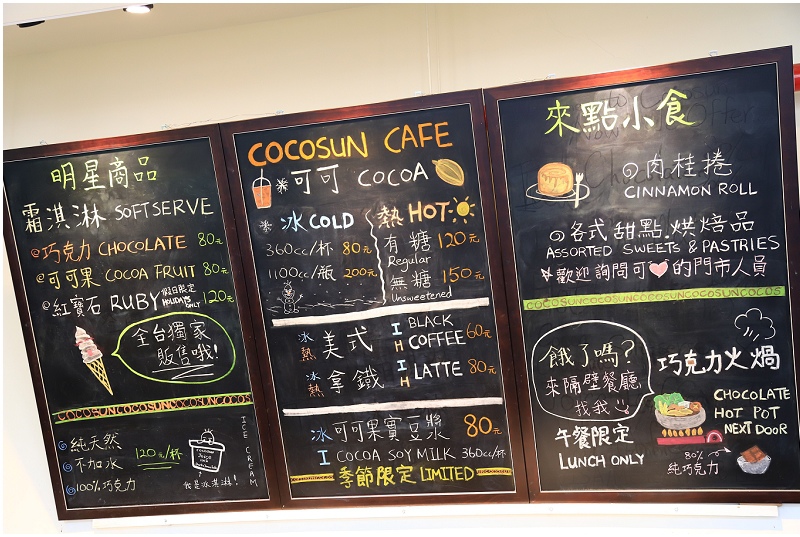 明星商品
霜淇淋 SOFTSERVE
巧克力 CHOCOLATE 80元
可可果 COCOA FRUIT 80元
紅寶石 RUBY 假日限定 HOLIDAYS ONLY 120元
全台獨家
販售哦!
COCOSUNCOCOSUNCOCOSUNCOCOS
純天然
不加水
100%巧克力
120元/杯
我是冰淇淋!
ICE CREAM
COCOSUN CAFE
可可 COCOA
冰 COLD
360cc/杯 80元
1100cc/瓶 200元
熱 HOT
有糖 120元
Regular
無糖 150元
Unsweetened
冰 熱 美式 I H BLACK COFFEE 60元
冰 熱 拿鐵 I H LATTE 80元
冰 可可果實豆漿 80元
I COCOA SOY MILK 360cc/杯
季節限定 LIMITED
來點小食
肉桂捲
CINNAMON ROLL
各式甜點.烘焙品
ASSORTED SWEETS & PASTRIES
歡迎詢問可❤的門市人員
COCOSUNCOCOSUNCOCOSUNCOCOSUNCOCOS
餓了嗎?
來隔壁餐廳
找我
午餐限定
LUNCH ONLY
巧克力火鍋
CHOCOLATE
HOT POT
NEXT DOOR
80%
純巧克力